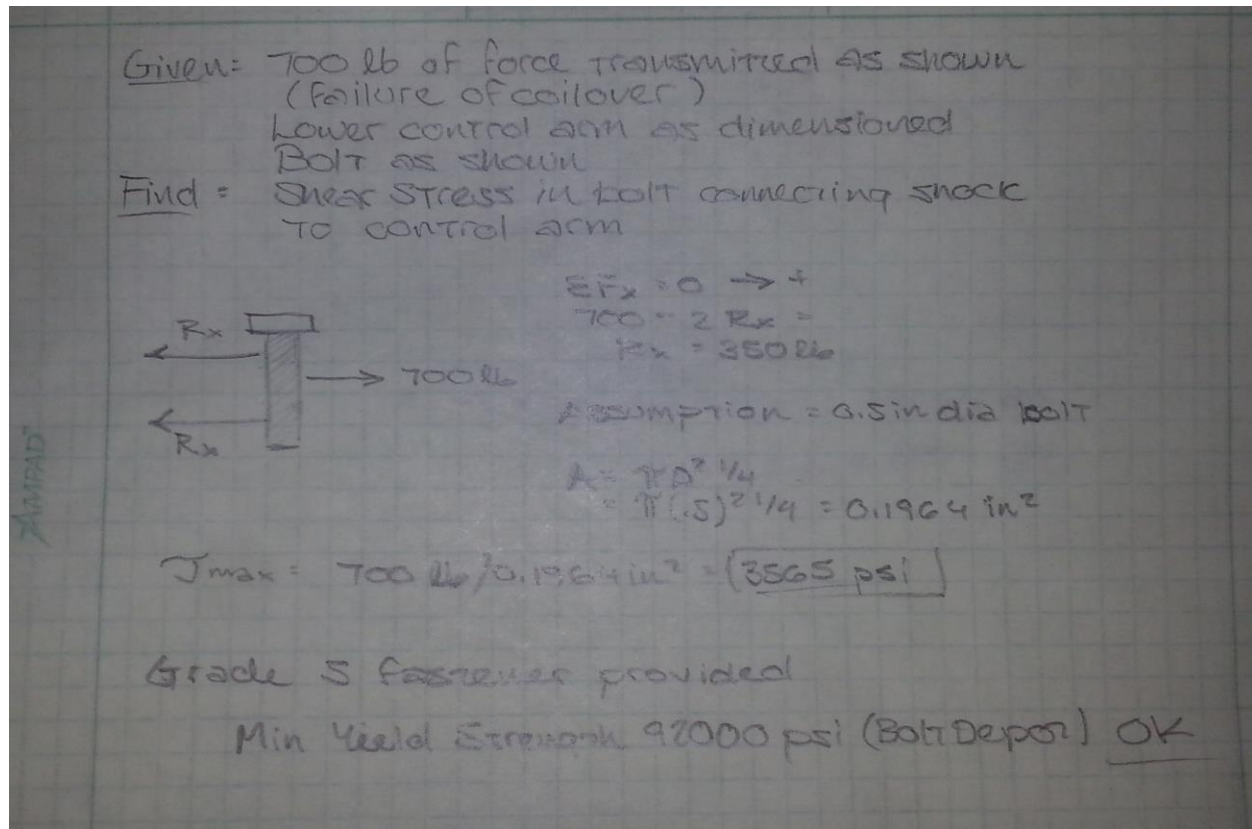 Given: 700 lb of force transmitted as shown
(failure of coilover)
Lower control arm as dimensioned
Bolt as shown
Find: Shear Stress in bolt connecting shock
to control arm
ΣFx = 0 → +
700 - 2 Rx =
Rx = 350 lb
Rx
→ 700 lb
Rx
Assumption = 0.5 in dia bolt
A = πD² 1/4
= π(.5)² 1/4 = 0.1964 in²
Jmax = 700 lb/0.1964 in² = 3565 psi
Grade 5 fastener provided
Min Yield Strength 92000 psi (Bolt Depot) OK
AMPAD